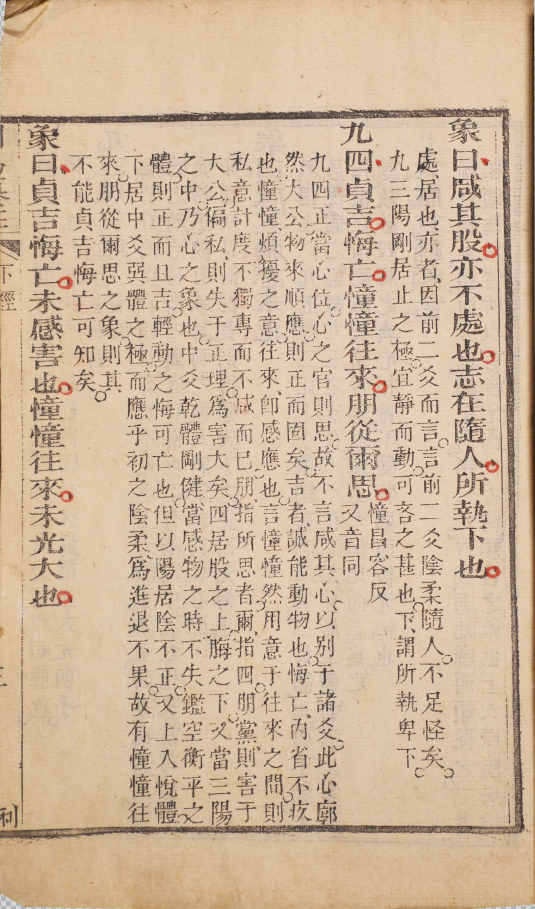 象曰咸其股亦不處也志在隨人所執下也
處居也亦者因前二爻而言言前二爻陰柔隨人不足怪矣
九三陽剛居止之極宜靜而動可吝之甚也下謂所執卑下
九四貞吉悔亡憧憧往來朋從爾思
憧昌容反
又音同
九四正當心位心之官則思故不言咸其心以別于諸爻此心廓
然大公物來順應則正而固矣吉者誠能動物也悔亡內省不疚
也憧憧煩擾之意往來卽感應也言憧憧然用意于往來之間則
私意計度不獨專而不咸而已朋指所思者爾指四朋黨則害于
大公偏私則失于正理爲害大矣四居股之上脢之下又當三陽
之中乃心之象也中爻乾體剛健當感物之時不失鑑空衡平之
體則正而且吉輕動之悔可亡也但以陽居陰不正又上入悅體
下居中爻巽體之極而應乎初之陰柔爲進退不果故有憧憧往
來朋從爾思之象則其
不能貞吉悔亡可知矣
象曰貞吉悔亡未感害也憧憧往來未光大也
下經
三
利